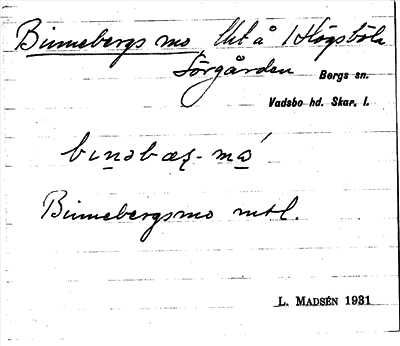 Binnebergs mo, Utå 1 Högsböla
Sörgården Bergs sn.
Vadsbo hd. Skar. l.
binəbæʂ- må
Binnebergsmo mtl.
L. Madsén 1931